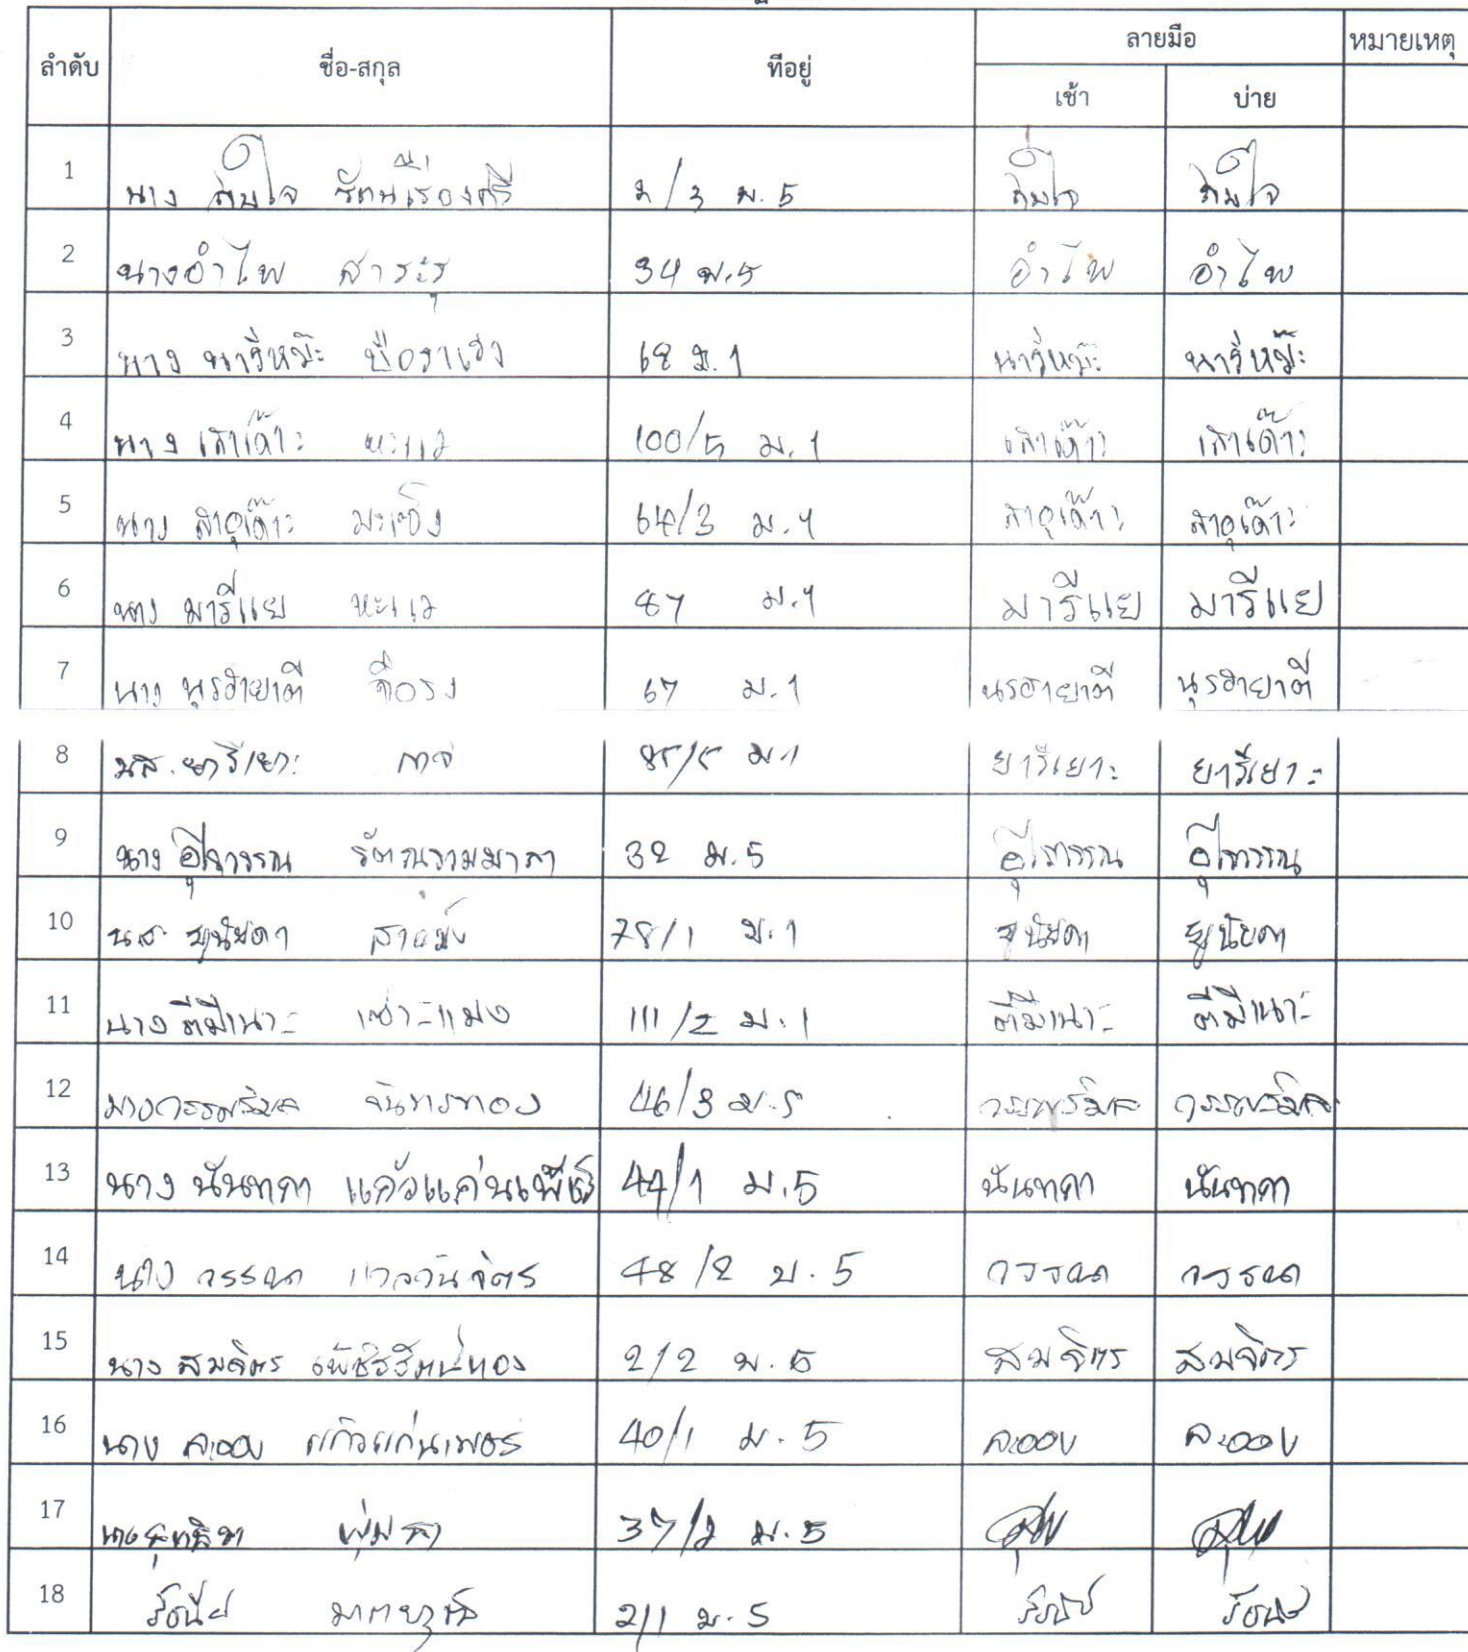 ลำดับ ชื่อ-สกุล ที่อยู่ ลายมือ หมายเหตุ
เช้า บ่าย
1 นาง สมใจ รัตนเรืองศรี 2/3 ม.5 สมใจ สมใจ
2 นางอำไพ สาระรุ 34 ม.5 อำไพ อำไพ
3 นาง นารีหม๊ะ บือราเฮง 68 ม.1 นารีหม๊ะ นารีหม๊ะ
4 นาง เสาเด๊าะ หะแว 100/5 ม.1 เสาเด๊าะ เสาเด๊าะ
5 นาง สาอุเด๊าะ มะเซ็ง 64/3 ม.1 สาอุเด๊าะ สาอุเด๊าะ
6 นาง มารีแย หะแว 87 ม.1 มารีแย มารีแย
7 นาง นุรฮายาตี จือรง 67 ม.1 นุรฮายาตี นุรฮายาตี
8 นส. ยารีเยาะ 85/5 ม.1 ยารีเยาะ ยารีเยาะ
9 นาง อุไรวรรณ 32 ม.5 อุไรวรรณ อุไรวรรณ
10 น.ส. 78/1 ม.1
11 นาง ตีมีเนาะ เซาะแมง 111/2 ม.1 ตีมีเนาะ ตีมีเนาะ
12 นางวรรณวิมล จันทรทอง 46/3 ม.5 วรรณวิมล วรรณวิมล
13 นาง นันทภา แก้วแก่นเพ็ชร 44/1 ม.5 นันทภา นันทภา
14 นาง วรรณา แววันจิตร 48/2 ม.5 วรรณา วรรณา
15 นาง สมจิตร เพ็ชรรัตน์ทอง 2/2 ม.5 สมจิตร สมจิตร
16 นาง ละออง แก้วแก่นเพชร 40/1 ม.5 ละออง ละออง
17 37/2 ม.5
18 รัชนีย์ 2/1 ม.5 รัชนีย์